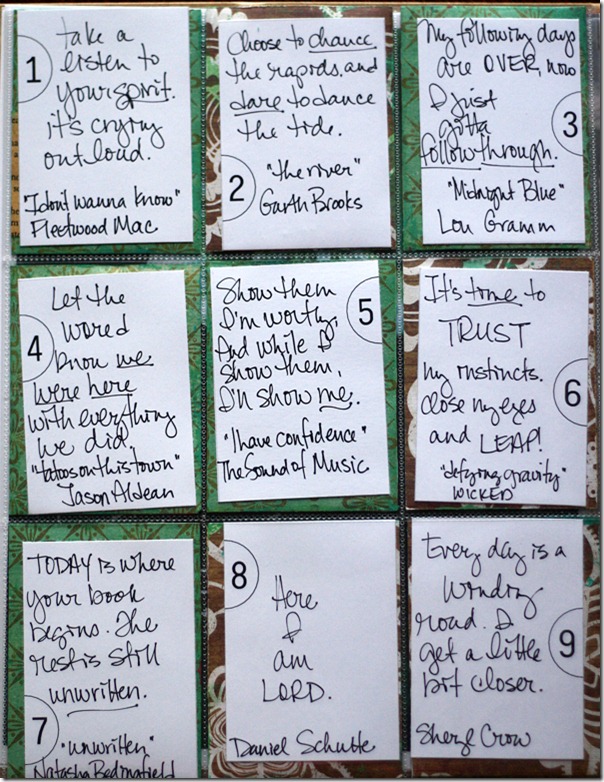 1
take a
listen to
your spirit.
it's crying
out loud.
"I don't wanna know"
Fleetwood Mac
Choose to chance
the rapids. and
dare to dance
the tide.
2
"the river"
Garth Brooks
My following days
are OVER, now
I just
gotta
follow through.
3
"Midnight Blue"
Lou Gramm
4
Let the
world
know we
were here
with everything
we did
"tatoos on this town"
Jason Aldean
Show them
I'm worthy,
And while I
show them,
I'll show me.
5
"I have confidence"
The Sound of Music
It's time to
TRUST
my instincts.
close my eyes
and LEAP!
6
"defying gravity"
WICKED
TODAY is where
your book
begins. The
rest is still
unwritten.
7
"unwritten"
Natasha Bedingfield
8
Here
I
am
LORD.
Daniel Schutte
Every day is a
winding
road. I
get a little
bit closer.
9
Sheryl Crow